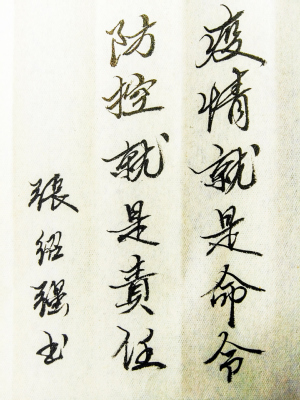 疫情就是命令
防控就是責任
張紹強书